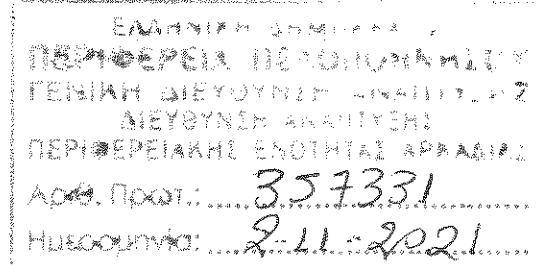 ΕΛΛΗΝΙΚΗ ΔΗΜΟΚΡΑΤΙΑ
ΠΕΡΙΦΕΡΕΙΑ ΠΕΛΟΠΟΝΝΗΣΟΥ
ΓΕΝΙΚΗ ΔΙΕΥΘΥΝΣΗ ΑΝΑΠΤΥΞΗΣ
ΔΙΕΥΘΥΝΣΗ ΑΝΑΠΤΥΞΗΣ
ΠΕΡΙΦΕΡΕΙΑΚΗΣ ΕΝΟΤΗΤΑΣ ΑΡΚΑΔΙΑΣ
Αριθ. Πρωτ.: 357331
Ημερομηνία: 2-11-2021